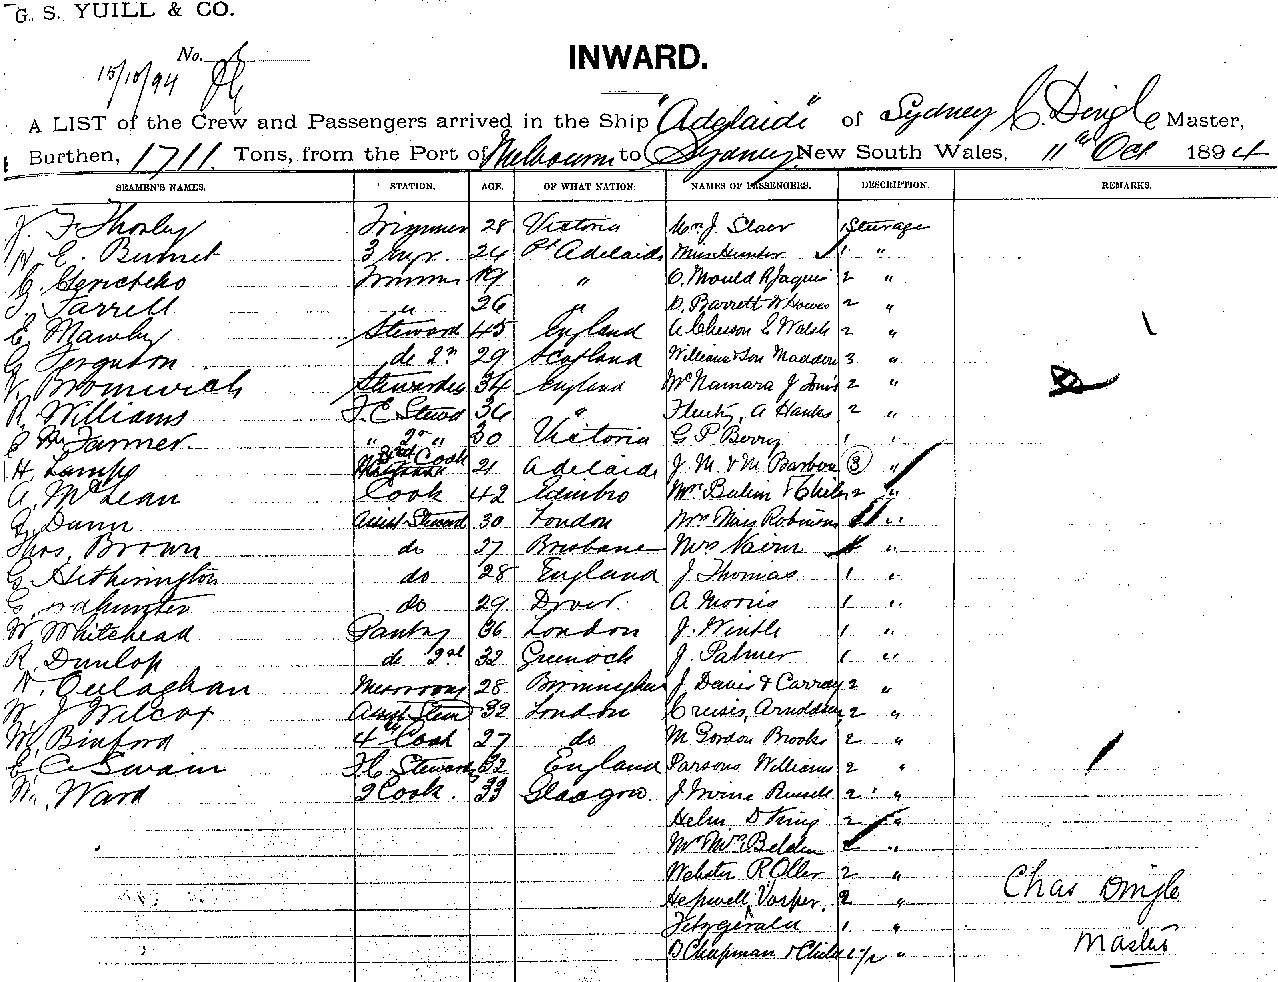 G. S. YUILL & CO.
No.
15/10/94
INWARD.
A LIST of the Crew and Passengers arrived in the Ship "Adelaide" of Sydney C. Dingle Master,
Burthen, 1711 Tons, from the Port of Melbourne to Sydney New South Wales, 11th Oct 1894
SEAMEN'S NAMES. STATION. AGE. OF WHAT NATION. NAMES OF PASSENGERS. DESCRIPTION. REMARKS.
F Thorley Trimmer 28 Victoria Mrs J. Slaer 1 Steerage
E. Burnet 24 Pt Adelaide Miss Hunter 1 "
Trimmer 19 " C. Mould R Jaques 2 "
Farrell " 26 " D. Barrett W Howes 2 "
E Mawby Steward 45 England 2 "
G. Ferguson do 2nd 29 Scotland Williams & Son Madden 3 "
Bromwich Stewardess 34 England McNamara J Jones 2 "
R. Williams F. C. Stewd 36 " A Hanks 2 "
Farmer " 2nd " 30 Victoria G P Berry 1 "
H. Lamps 3rd Cook 21 Adelaide J. M. & M. Barbour 3 "
A. McLean Cook 42 Edinbro Mrs & Child 2 "
Dunn Assist Steward 30 London Mrs Miss Robinson "
Thos. Brown do 27 Brisbane Mrs Nairn "
G. Hetherington do 28 England J. Thomas 1 "
do 29 Dover A Morris 1 "
W. Whitehead Pantry 36 London J. Wintle 1 "
R. Dunlop do 2nd 32 Greenock J. Palmer 1 "
Messroom 28 Birmingham J. Davis & Carray 2 "
W. J Wilcox Assist Stew 32 London 2 "
Binford 4th Cook 27 do M Gordon Brooks 2 "
C Swain F. C. Steward 32 England Parsons Williams 2 "
Wm. Ward 2 Cook. 33 Glasgow. J Irvine Russell 2 "
Helm D King 2 "
Mr Mrs Belden 2 "
Webster R Oller 2 "
Hepwell, Vosper. 2 "
Fitzgerald 1 "
D Chapman & Child 1 1/2 "
Chas Dingle
Master